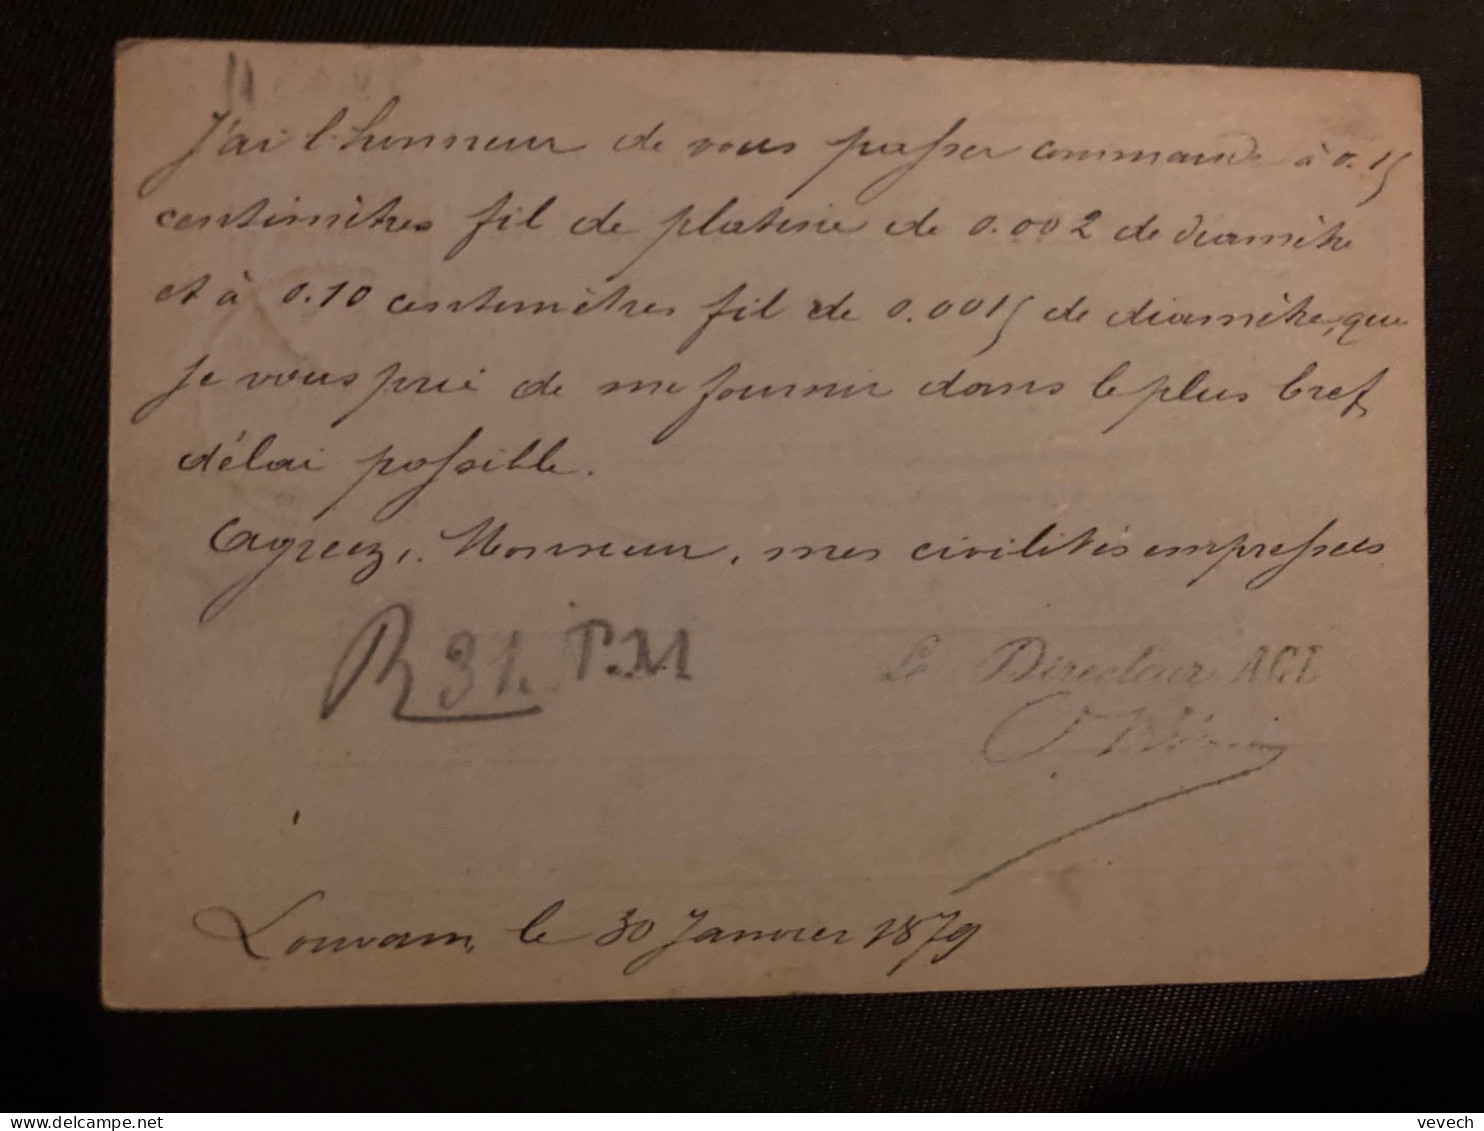 J'ai l'honneur de vous passer commande à 0.15
centimètres fil de platine de 0.002 de diamètre
et à 0.10 centimètres fil de 0.0015 de diamètre, que
je vous prie de me fournir dans le plus bref
délai possible.
Agreez, Monsieur, mes civilités empressées
R 31. P.M
Le Directeur AGI
Louvain, le 30 Janvier 1879
vevech